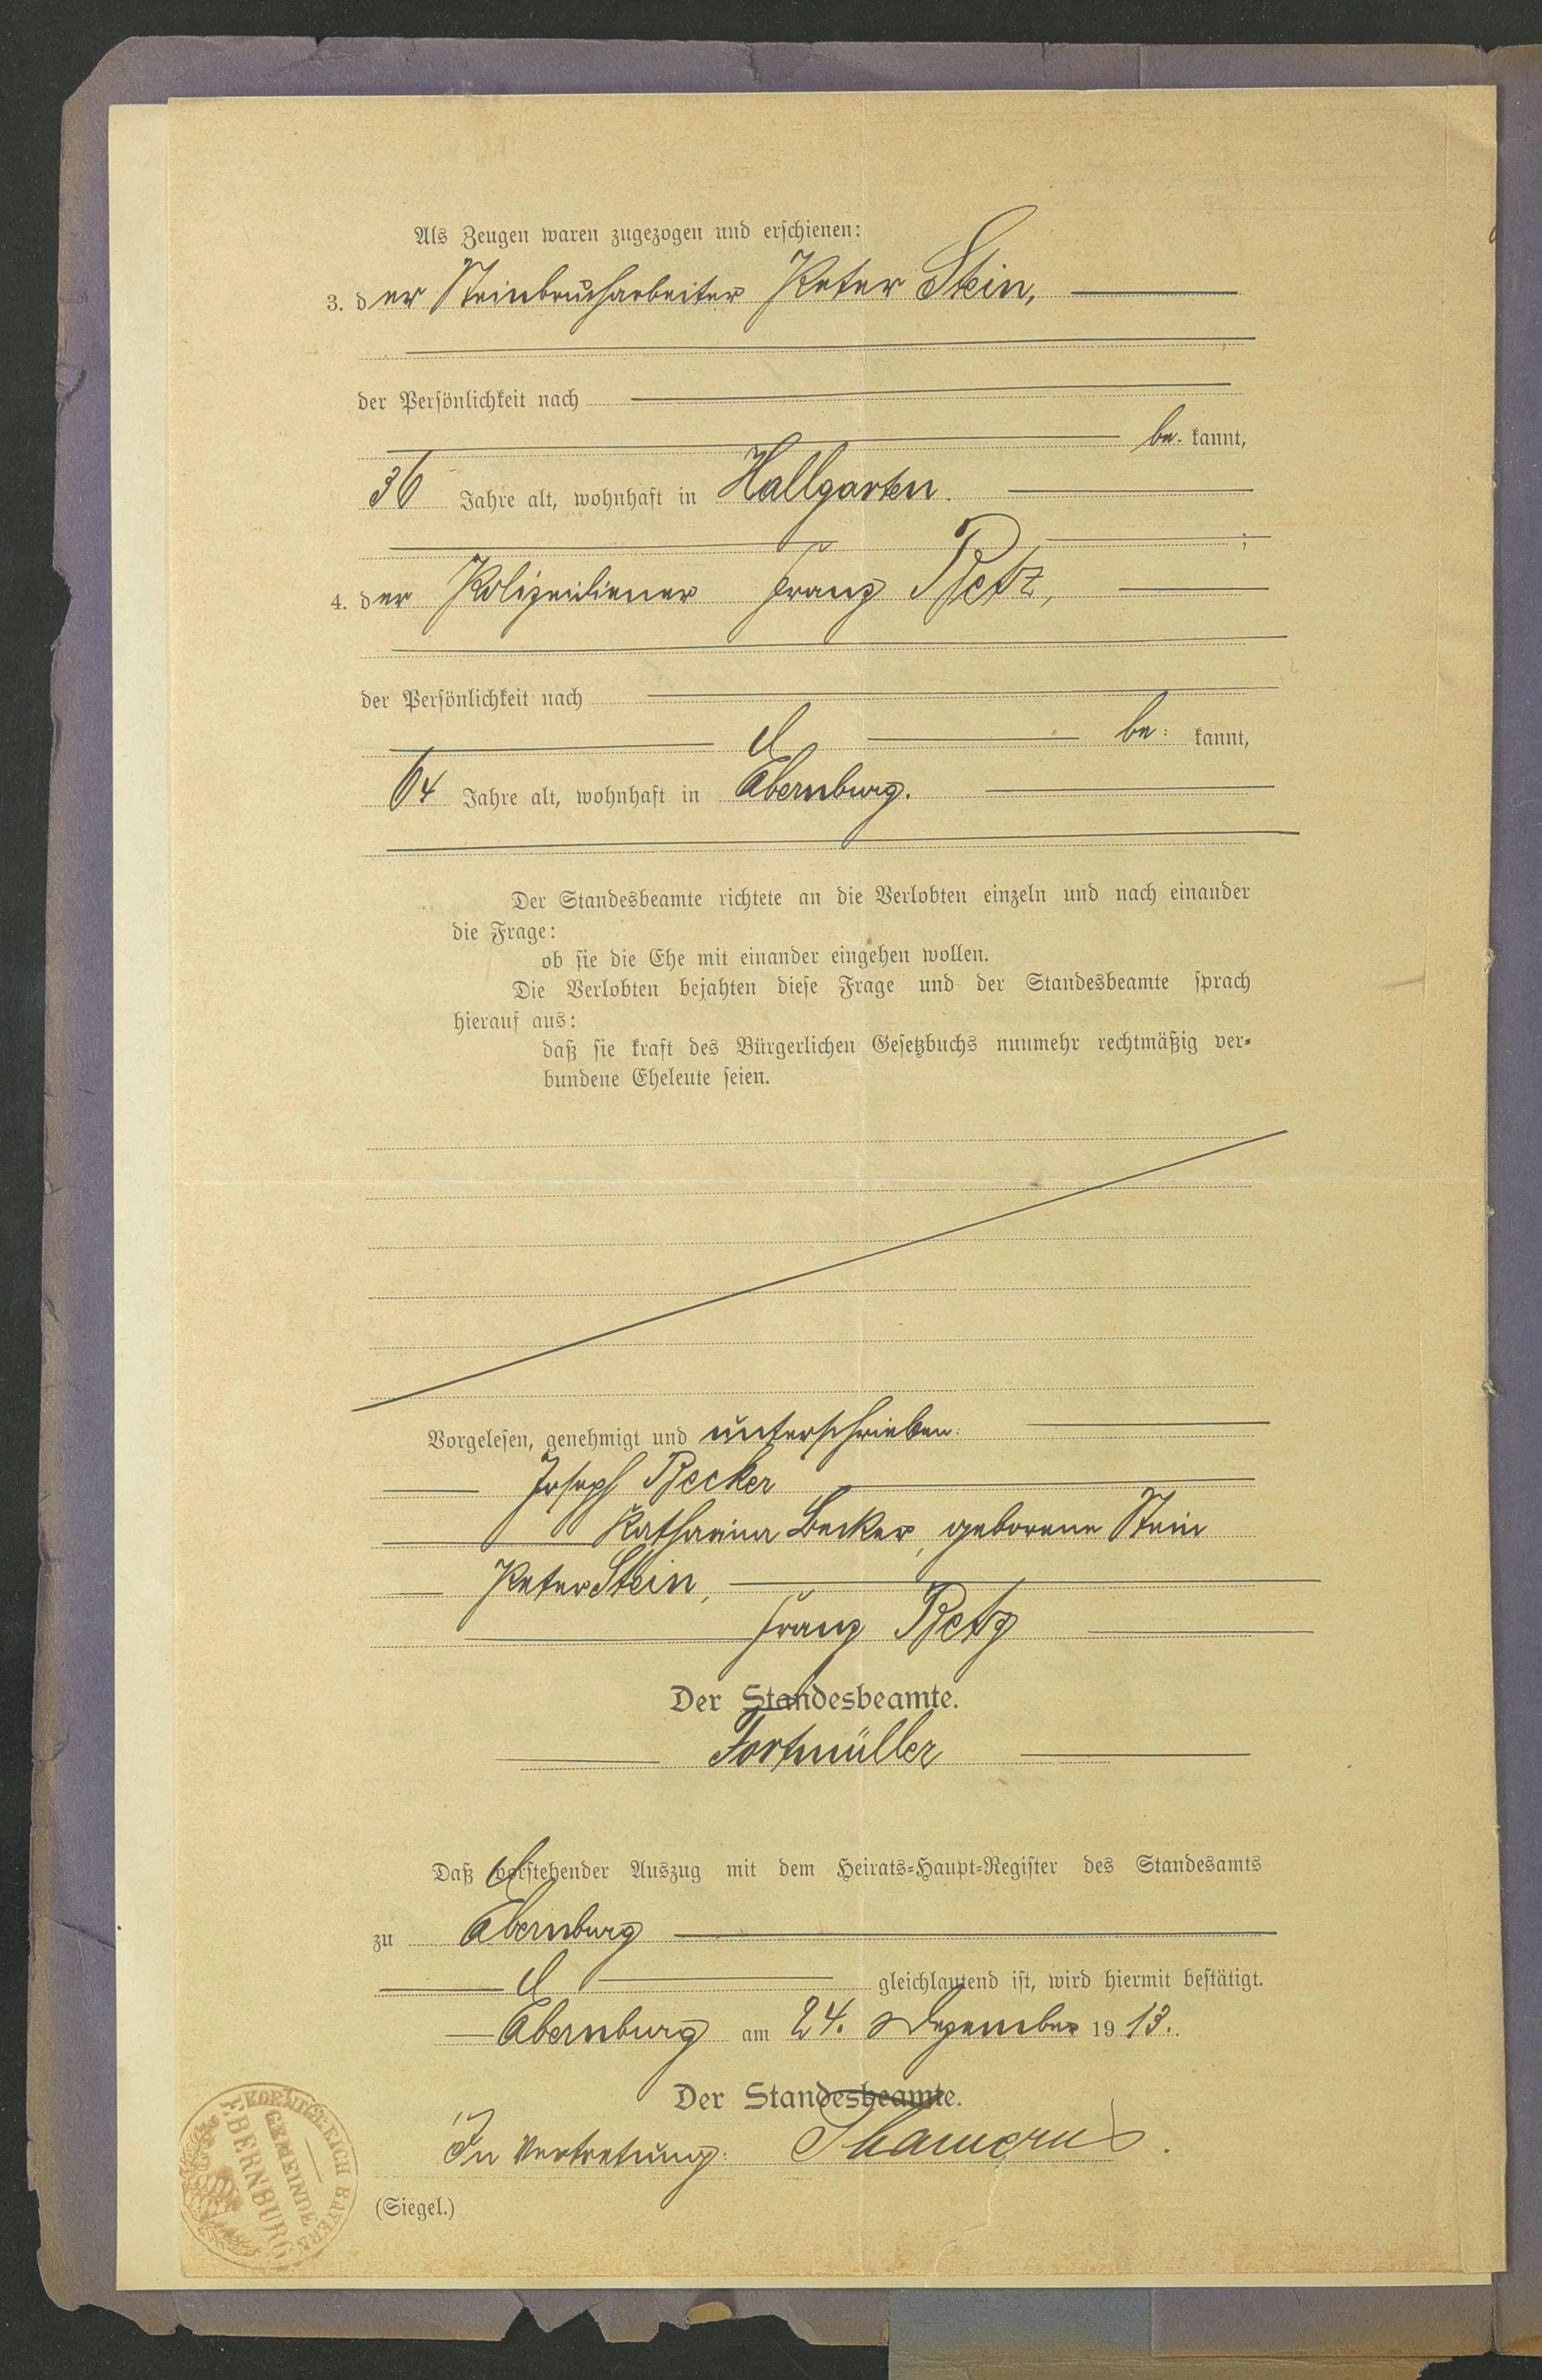 Als Zeugen waren zugezogen und erschienen:
3. der Steinbrucharbeiter Peter Stein,
der Persönlichkeit nach
be- kannt,
36 Jahre alt, wohnhaft in Hallgarten.
;
4. der Polizeidiener Franz Betz,
der Persönlichkeit nach
be- kannt,
64 Jahre alt, wohnhaft in Ebernburg.
Der Standesbeamte richtete an die Verlobten einzeln und nach einander
die Frage:
ob sie die Ehe mit einander eingehen wollen.
Die Verlobten bejahten diese Frage und der Standesbeamte sprach
hierauf aus:
daß sie kraft des Bürgerlichen Gesetzbuchs nunmehr rechtmäßig ver-
bundene Eheleute seien.
Vorgelesen, genehmigt und unterschrieben:
Joseph Becker
Katharina Becker, geborene Stein
Peter Stein,
Franz Betz
Der Standesbeamte.
Fortmüller
Daß vorstehender Auszug mit dem Heirats-Haupt-Register des Standesamts
zu Ebernburg
gleichlautend ist, wird hiermit bestätigt.
Ebernburg am 24. Dezember 1913.
Der Standesbeamte.
In Vertretung:
(Siegel.)
KOENIGREICH BAYERN
GEMEINDE
EBERNBURG